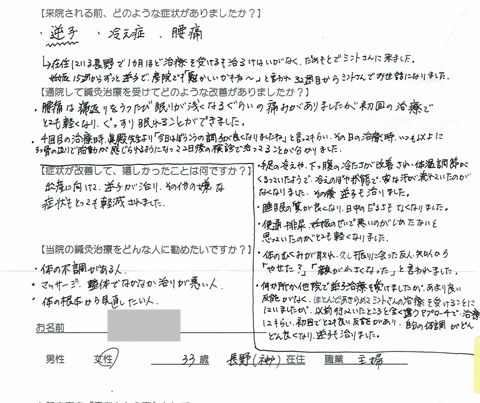 【来院される前、どのような症状がありましたか?】
・逆子 ・冷え症 ・腰痛
在住している長野で1カ月ほど治療を受けても治るけはいがなく、だめもとでミントさんに来ました。
妊娠15週からずっと逆子で、産院でも「難かしいかもね〜」と言われ32週目からミントさんでお世話になりました。
【通院して鍼灸治療を受けてどのような改善がありましたか?】
・腰痛は寝返りをうつたび眠りが浅くなるぐらいの痛みがありましたが、初回の治療で
とても軽くなり、ぐっすり眠れることができました。
・4回目の治療時、真殿先生より「今日はおうちの調子が良くなりましたね」と言ってもらい、その日の治療時、いつも以上に
胎動が感じられるようになって2日後の検診で治ってることが分かりました。
【症状が改善して、嬉しかったことは何ですか?】
出産に向けて、逆子が治り、その他の嫌な
症状もとっても軽減されました。
【当院の鍼灸治療をどんな人に勧めたいですか?】
・体の不調がある人。
・マッサージ、整体でなかなか治りが悪い人
・体の根本から見直したい人。
・手足の冷えや、下っ腹の冷たさが改善され、体温調節が
くるっていたようで、冷えのぼせが酷く、変な汗が流れていたのが
なくなりました。その後 逆子も治りました。
・睡眠の質が良くなり、日中のだるさもなくなりました。
・便通・排尿、妊娠のせいで悪いのがしかたないと
思っていたのがとても軽くなりました。
・体のむくみが取れ、久し振りに会った友人・知人から
「やせた?」「顔が小さくなった」と言われました。
・何か所か他院で逆子治療を受けましたが、あまり良い
反応がなく、ほとんどあきらめミントさんの治療を受けることに
しましたが、以前行っていたところと全く違うアプローチで治療
してもらい、初回でとても良い反応があり、自分の体調がどん
どん良くなり、逆子も治りました。
お名前
男性 女性 33歳 長野(神戸)在住 職業 主婦